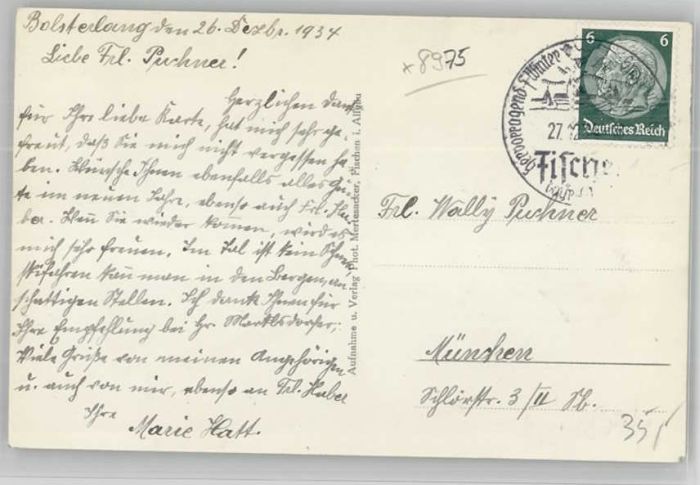 Bolsterlang den 26. Dezbr. 1934
Liebe Frl. Puchner!
Herzlichen Dank
für Ihre liebe Karte, hat mich sehr ge-
freut, daß Sie mich nicht vergessen ha-
ben. Wünsche Ihnen ebenfalls alles Gu-
te im neuen Jahre, ebenso auch Frl. Ha-
ber. Wenn Sie wieder kommen, wird es
mich sehr freuen. Im Tal ist kein Schnee,
skifahren kann man in den Bergen, an
schattigen Stellen. Ich danke Ihnen für
Ihre Empfehlung bei Hr. Marktsdorfer.
Viele Grüße von meinen Angehörigen
u. auch von mir, ebenso an Frl. Haber
Ihre
Marie Hatt.
Aufnahme u. Verlag Phot. Mertesacker, Fischen i. Allgäu
*8975
6 6
Deutsches Reich
Hervorragend f. Winter
27.
Fische
Frl. Wally Puchner
München
Schlörstr. 3/II Sb.
35,